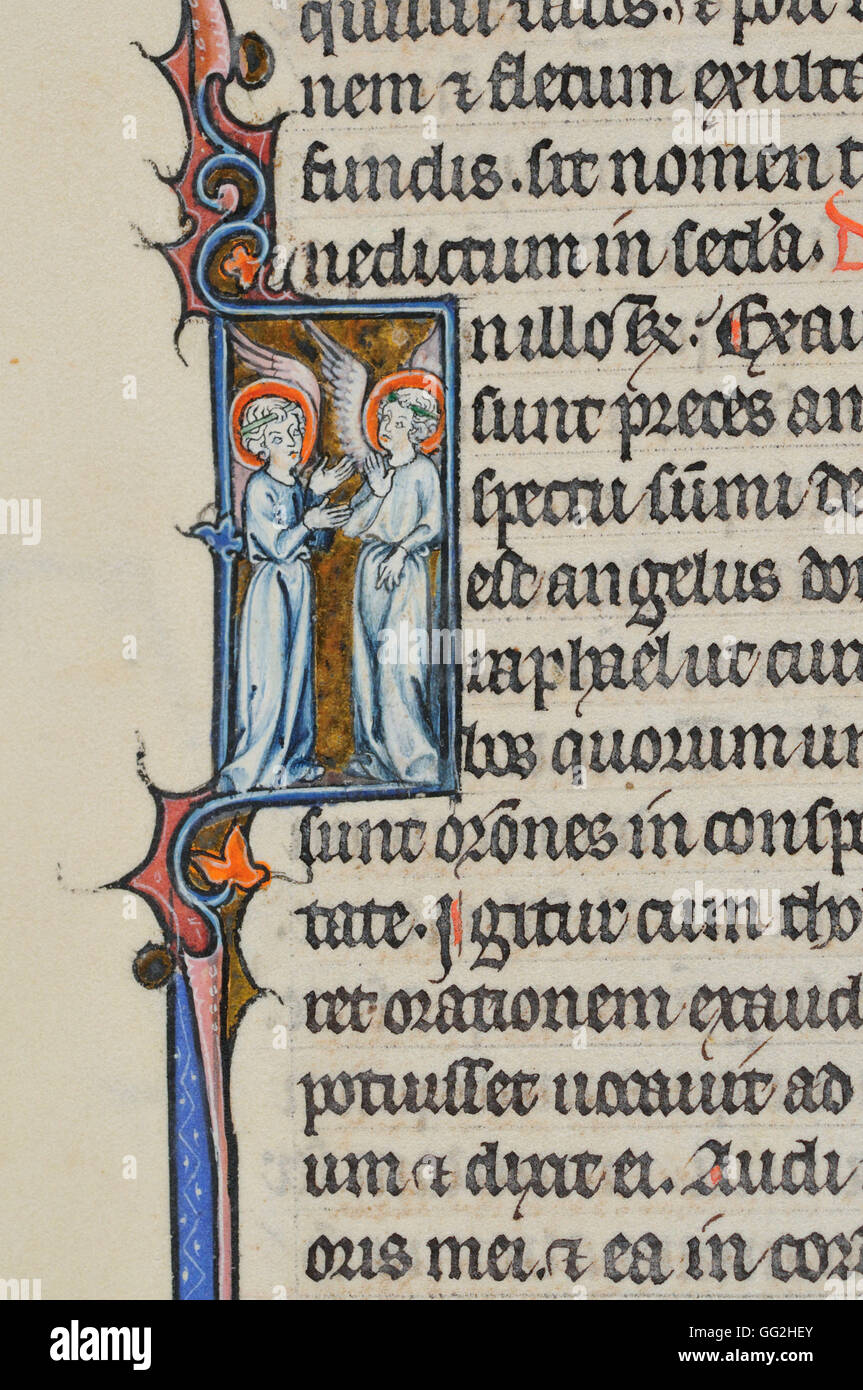 quillu
nem ⁊ fletum exult
fundis. sit nomen t
nedictum in secl'a.
n illo
Exau
sunt preces an
spectu su̅mi de
est angelus don
raphael ut cur
bos quorum un
sunt or̅ones in consp
tate. Igitur cum tho
ret orationem exaud
potuisset uocauit ad
um ⁊ dixit ei. Audi
oris mei. ⁊ ea in cor
alamy
Image ID: GG2HEY
www.alamy.com